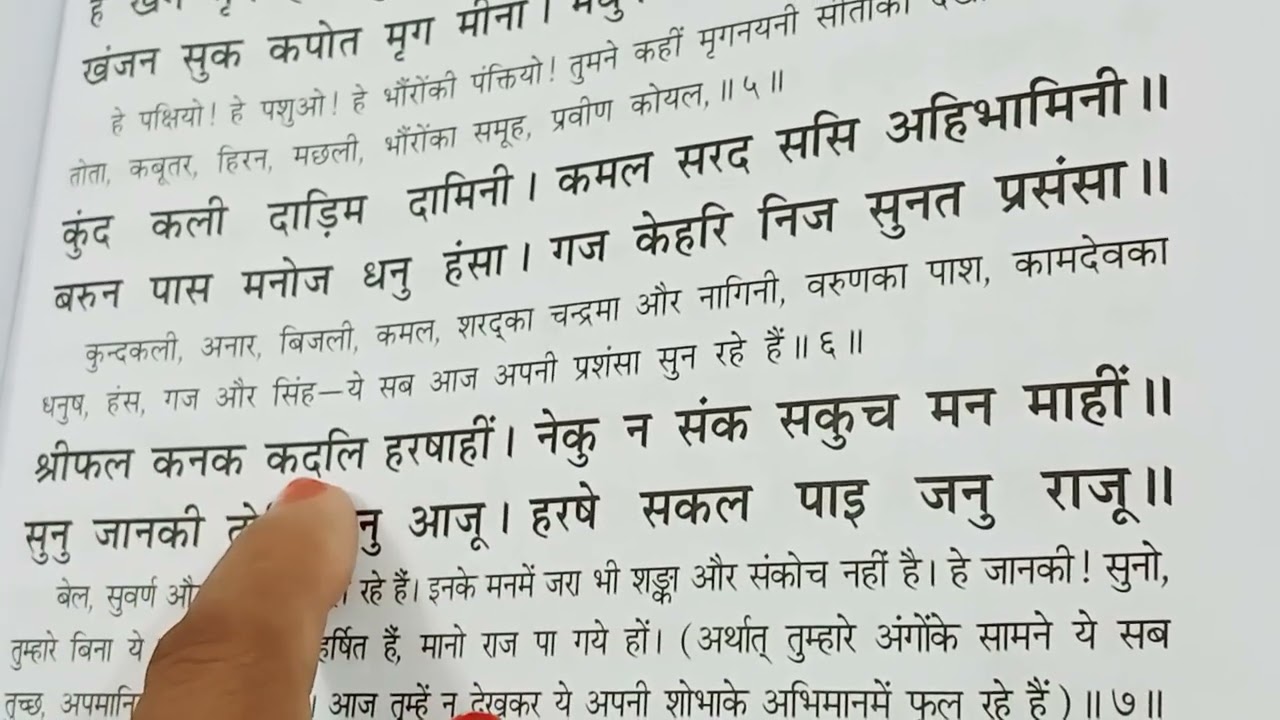 खंजन सुक कपोत मृग मीना ।
हे पक्षियो! हे पशुओ! हे भौंरोंकी पंक्तियो! तुमने कहीं मृगनयनी सीताको
तोता, कबूतर, हिरन, मछली, भौंरोंका समूह, प्रवीण कोयल, ॥ ५ ॥
कुंद कली दाड़िम दामिनी । कमल सरद ससि अहिभामिनी ॥
बरुन पास मनोज धनु हंसा । गज केहरि निज सुनत प्रसंसा ॥
कुन्दकली, अनार, बिजली, कमल, शरद्का चन्द्रमा और नागिनी, वरुणका पाश, कामदेवका
धनुष, हंस, गज और सिंह—ये सब आज अपनी प्रशंसा सुन रहे हैं ॥ ६ ॥
श्रीफल कनक कदलि हरषाहीं । नेकु न संक सकुच मन माहीं ॥
सुनु जानकी आजू । हरषे सकल पाइ जनु राजू ॥
बेल, सुवर्ण रहे हैं। इनके मनमें जरा भी शङ्का और संकोच नहीं है। हे जानकी! सुनो,
तुम्हारे बिना ये हर्षित हैं, मानो राज पा गये हों। (अर्थात् तुम्हारे अंगोंके सामने ये सब
तुच्छ, आज तुम्हें न देखकर ये अपनी शोभाके अभिमानमें फूल रहे हैं) ॥ ७ ॥